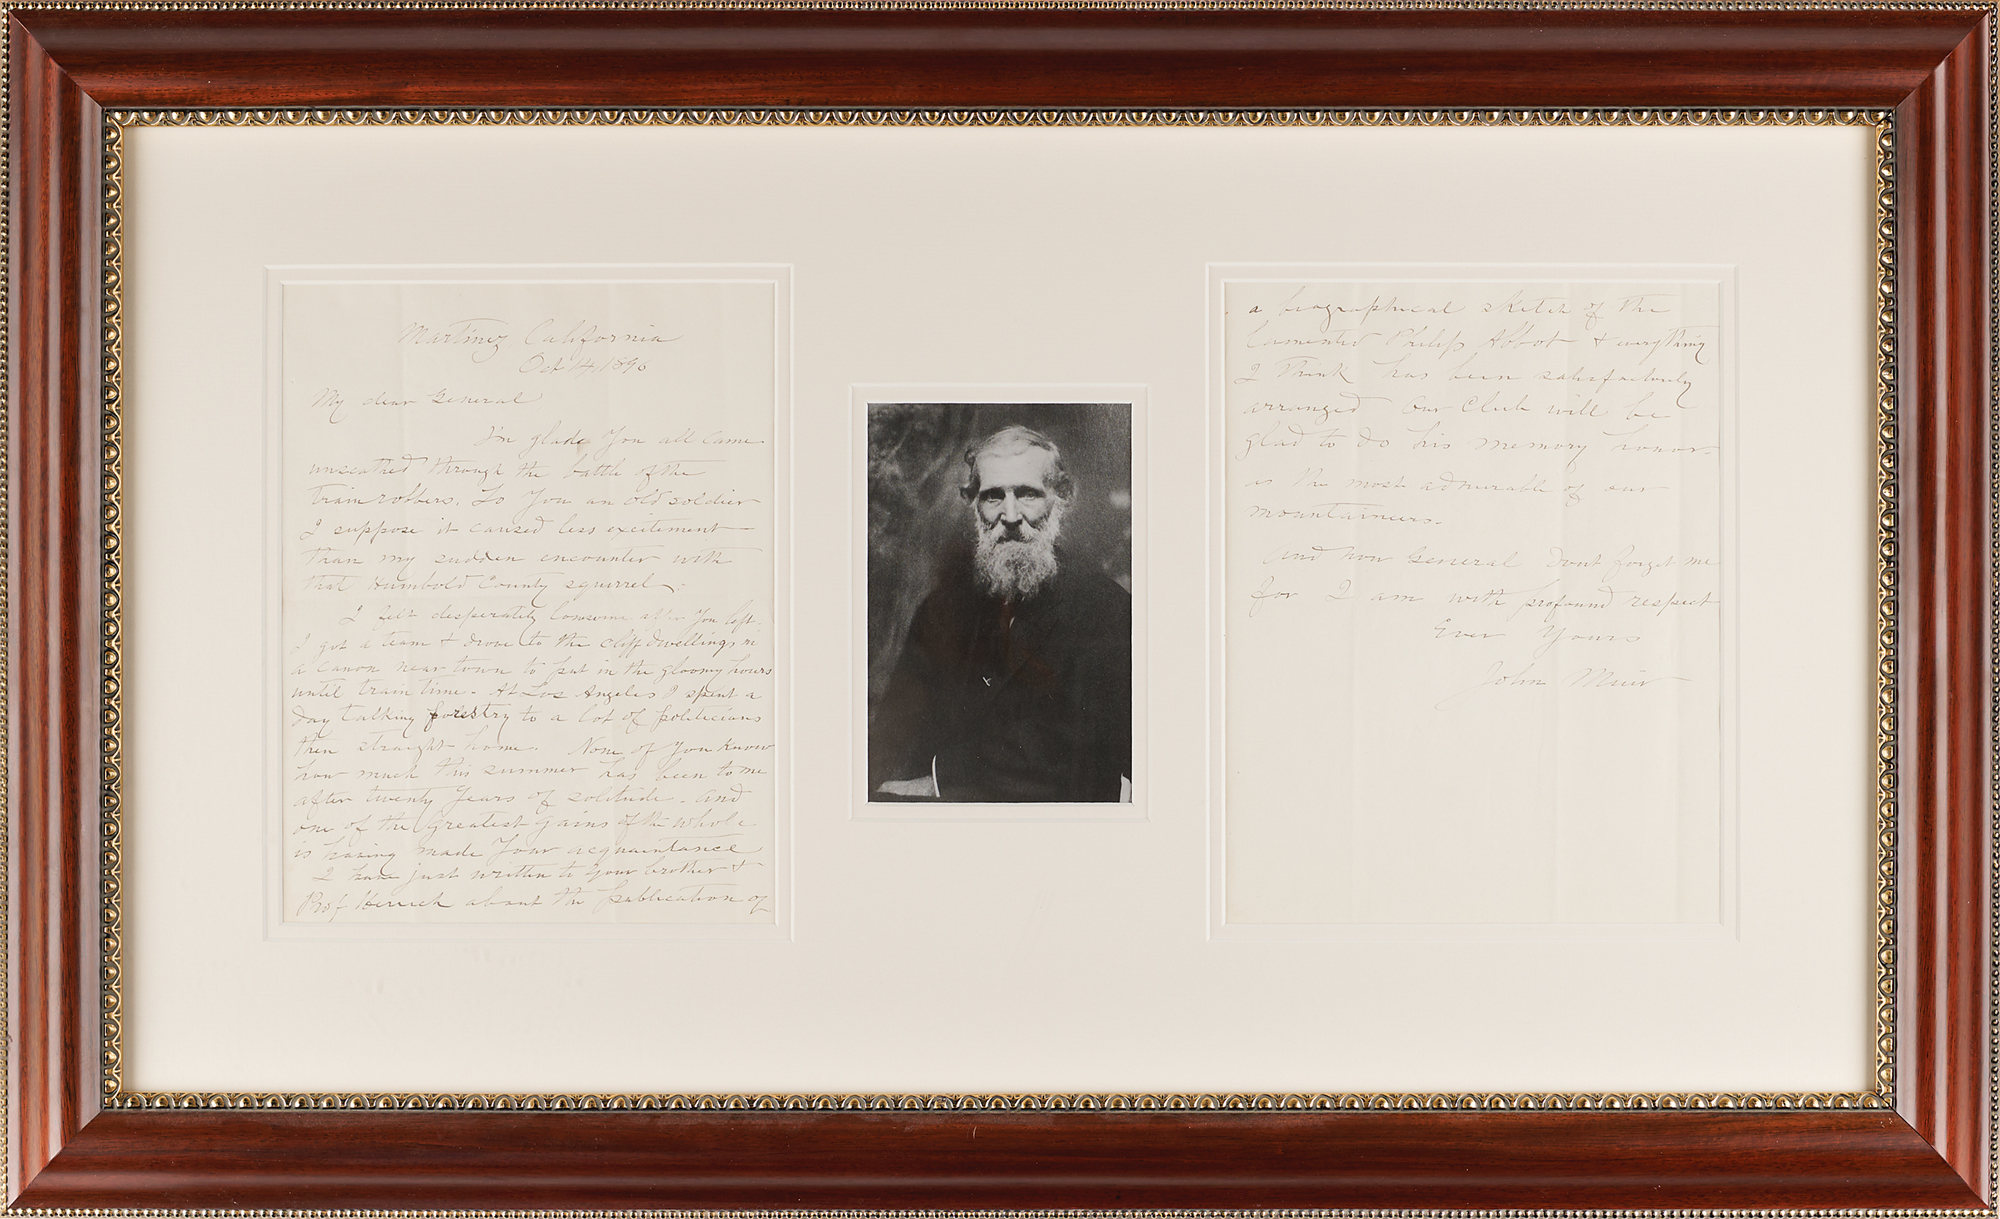 Martinez California
Oct 14, 1896
My dear General
I'm glad you all came
unscathed through the battle of the
train robbers. To you an old soldier
I suppose it caused less excitement
than my sudden encounter with
that Humbold County squirrel.
I felt desperately lonesome after you left.
I got a team & drove to the cliff dwellings in
a canon near town to put in the gloomy hours
until train time. At Los Angeles I spent a
day talking forestry to a lot of politicians
then straight home. None of you know
how much this summer has been to me
after twenty years of solitude. And
one of the greatest gains of the whole
is having made your acquaintance
I have just written to your brother &
Prof Herrick about the publication of
a biographical sketch of the
lamented Philip Abbot & everything
I think has been satisfactorily
arranged Our Club will be
glad to do his memory honor
as the most admirable of our
mountaineers.
And now General Dont forget me
for I am with profound respect
Ever Yours
John Muir